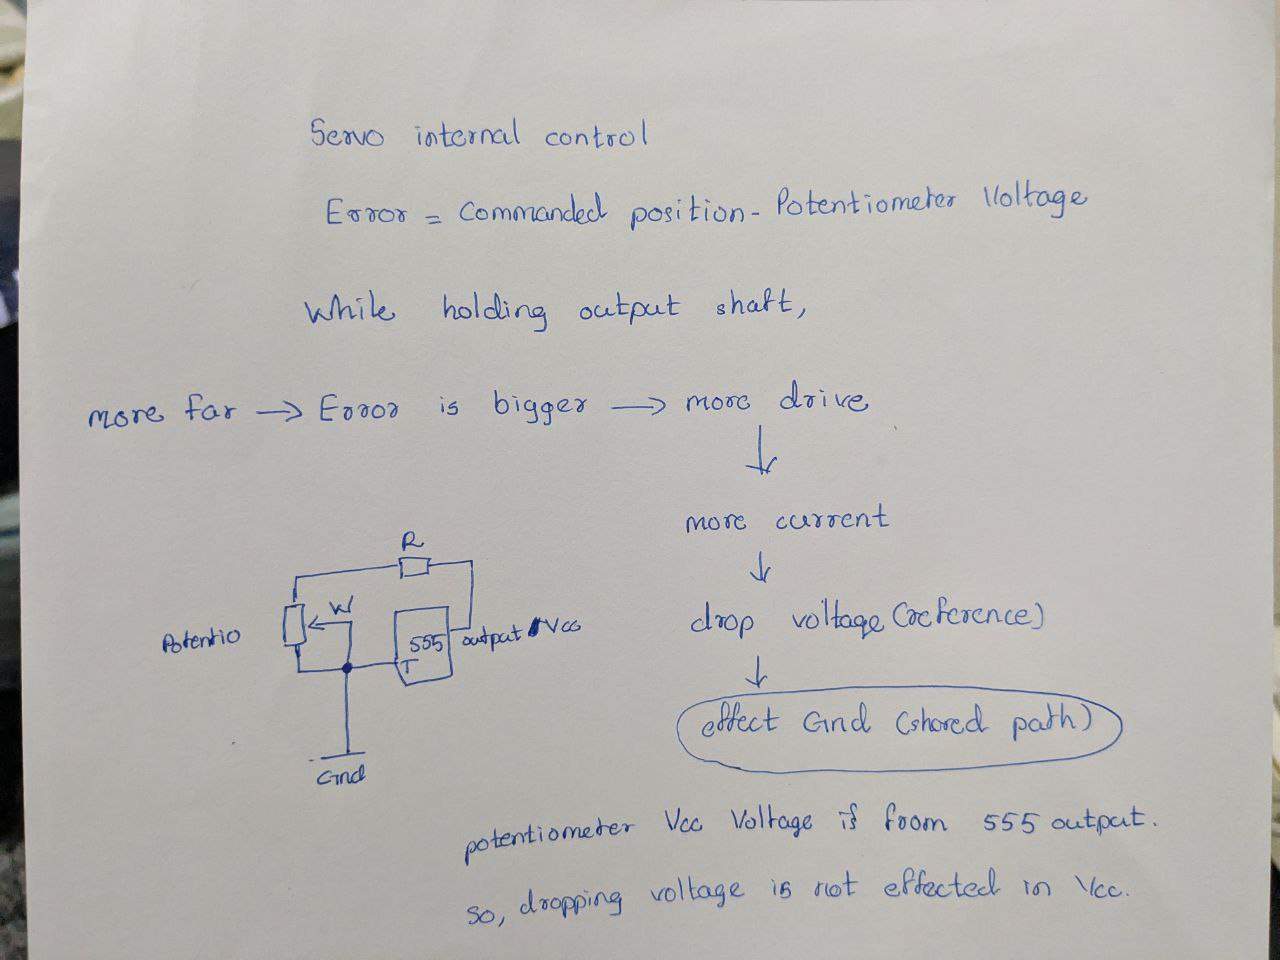 Servo internal control
Error = Commanded position - Potentiometer Voltage
While holding output shaft,
more far → Error is bigger → more drive
↓
more current
↓
drop voltage (reference)
↓
effect Gnd (shared path)
R
W
Potentio
555
T
output Vcc
Gnd
potentiometer Vcc Voltage is from 555 output.
so, dropping voltage is not effected in Vcc.